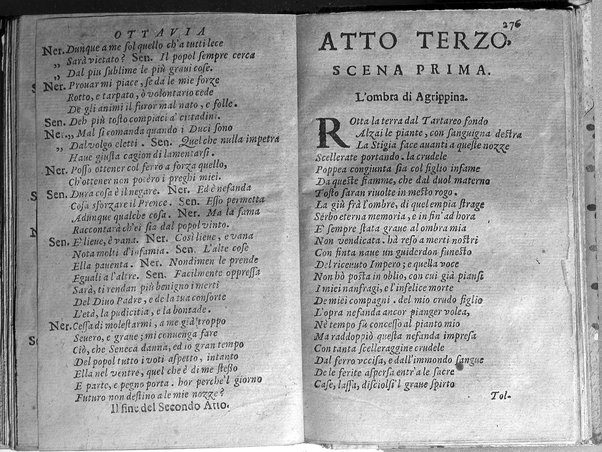 OTTAVIA
Ner. Dunque a me sol quello ch'a tutti lece
„ Sarà vietato? Sen. Il popol sempre cerca
„ Dal piu sublime le più graui cose.
Ner. Prouar mi piace, se da le mie forze
Rotto, e tarpato, ò volontario cede
De gli animi il furor mal nato, e folle.
Sen. Deh più tosto compiaci a' cittadini.
Ner.„ Mal si comanda quando i Duci sono
„ Dal volgo eletti. Sen. Quel che nulla impetra
Haue giusta cagion di lamentarsi.
Ner. Posso ottener col ferro a forza quello,
Ch'ottener non potero i preghi miei.
Sen. Dura cosa è il negare. Ner. Ed è nefanda
Cosa sforzare il Prence. Sen. Esso permetta
Adunque qualche cosa. Ner. Ma la fama
Raccontarà ch'ei sia dal popol vinto.
Sen. E' lieue, è vana. Ner. Così lieue, e vana
Nota molti d'infamia. Sen. L'alte cose
Ella pauenta. Ner. Nondimen le prende
Eguali a l'altre. Sen. Facilmente oppressa
Sarà, ti rendan più benigno i merti
Del Diuo Padre, e de la tua consorte
L'età, la pudicitia, e la bontade.
Ner. Cessa di molestarmi, a me già troppo
Seuero, e graue; mi conuenga fare
Ciò, che Seneca danna, ed io gran tempo
Del popol tutto i voti aspetto, intanto
Ella nel ventre, quel che è di me stesso
E parte, e pegno porta. hor perche'l giorno
Futuro non destino a le mie nozze?
Il fine del Secondo Atto.
276
ATTO TERZO,
SCENA PRIMA.
L'ombra di Agrippina.
ROtta la terra dal Tartareo fondo
Alzai le piante, con sanguigna destra
La Stigia face auanti a queste nozze
Scellerate portando. la crudele
Poppea congiunta sia col figlio infame
Da queste fiamme, che dal duol materno
Tosto saran riuolte in mesto rogo.
La giù frà l'ombre, di quel empia strage
Serbo eterna memoria, e in fin' ad hora
E' sempre stata graue al ombra mia
Non vendicata. hà reso a merti nostri
Con finta naue un guiderdon funesto
Del riceuuto Impero; e quella voce
Non hò posta in oblio, con cui già piansi
I miei naufragi, e l'infelice morte
De miei compagni. del mio crudo figlio
L'opra nefanda ancor pianger volea,
Nè tempo fà concesso al pianto mio
Ma raddoppiò questa nefanda impresa
Con tanta sceleraggine crudele
Dal ferro vccisa, e dall'immondo sangue
De le ferite aspersa entr'a le sacre
Case, lassa, disciolsi 'l graue spirto
Tol-